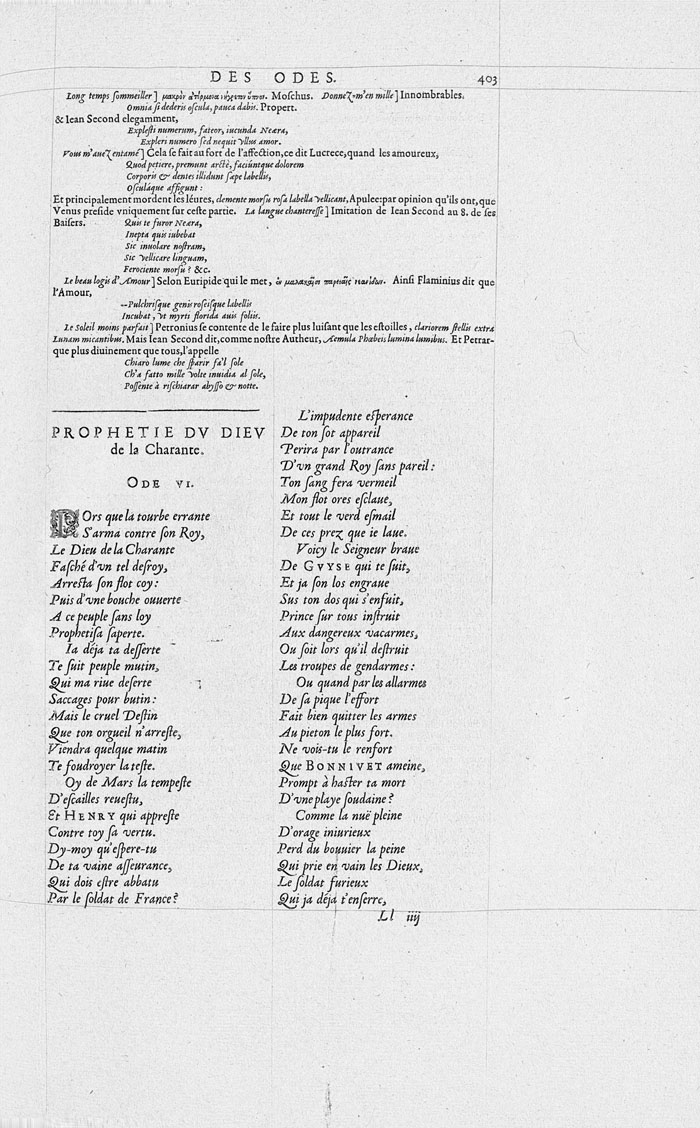 DES ODES. 403
Long temps sommeiller] Moschus. Donnez-m'en mille] Innombrables.
Omnia si dederis oscula, pauca dabis. Propert.
& Iean Second elegamment,
Explesti numerum, fateor, iucunda Neæra,
Expleri numero sed nequit yllus amor.
Vous m'auez entamé] Cela se fait au fort de l'affection, ce dit Lucrece, quand les amoureux,
Quod petiere, premunt arctè, faciúntque dolorem
Corporis & dentes illidunt sæpe labellis,
Osculáque affigunt:
Et principalement mordent les léures, clemente morsu rosa labella vellicant, Apulee: par opinion qu'ils ont, que
Venus preside vniquement sur ceste partie. La langue chanteresse] Imitation de Iean Second au 8. de ses
Baisers. Quis te furor Neæra,
Inepta quis iubebat
Sic inuolare nostram,
Sic vellicare linguam,
Ferociente morsu? &c.
Le beau logis d'Amour] Selon Euripide qui le met, Ainsi Flaminius dit que
l'Amour,
--Pulchrisque genis roseisque labellis
Incubat, vt myrti florida auis foliis.
Le Soleil moins parfait] Petronius se contente de le faire plus luisant que les estoilles, clariorem stellis extra
Lunam micantibus. Mais Iean Second dit, comme nostre Autheur, Æmula Phœbeis lumina luminibus. Et Petrar-
que plus diuinement que tous, l'appelle
Chiaro lume che sparir fa'l sole
Ch'a fatto mille volte inuidia al sole,
Possente à rischiarar abysso & notte.
PROPHETIE DV DIEV
de la Charante.
ODE VI.
LOrs que la tourbe errante
S'arma contre son Roy,
Le Dieu de la Charante
Fasché d'vn tel desroy,
Arresta son flot coy:
Puis d'vne bouche ouuerte
A ce peuple sans loy
Prophetisa saperte.
Ia déja ta desserte
Te suit peuple mutin,
Qui ma riue deserte
Saccages pour butin:
Mais le cruel Destin
Que ton orgueil n'arreste,
Viendra quelque matin
Te foudroyer la teste.
Oy de Mars la tempeste
D'escailles reuestu,
Et HENRY qui appreste
Contre toy sa vertu.
Dy-moy qu'espere-tu
De ta vaine asseurance,
Qui dois estre abbatu
Par le soldat de France?
L'impudente esperance
De ton sot appareil
Perira par l'outrance
D'vn grand Roy sans pareil:
Ton sang fera vermeil
Mon flot ores esclaue,
Et tout le verd esmail
De ces prez que ie laue.
Voicy le Seigneur braue
De GVYSE qui te suit,
Et ja son los engraue
Sus ton dos qui s'enfuit,
Prince sur tous instruit
Aux dangereux vacarmes,
Ou soit lors qu'il destruit
Les troupes de gendarmes:
Ou quand par les allarmes
De sa pique l'effort
Fait bien quitter les armes
Au pieton le plus fort.
Ne vois-tu le renfort
Que BONNIVET ameine,
Prompt à haster ta mort
D'vne playe soudaine?
Comme la nuë pleine
D'orage iniurieux
Perd du bouuier la peine
Qui prie en vain les Dieux,
Le soldat furieux
Qui ja déjà t'enserre,
Ll iiij